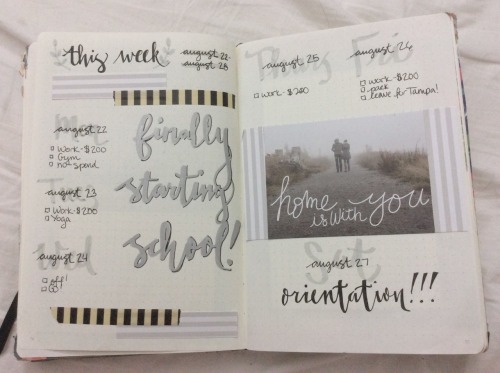 this week
august 22-
august 28
august 22
Work-$200
Gym
no spend
august 23
Work-$200
Yoga
august 24
off!
finally
starting
school!
august 25
Work-$200
august 26
Work-$200
pack
leave for Tampa!
home
is with you
august 27
orientation!!!
Thurs
Fri
Wed
Sat